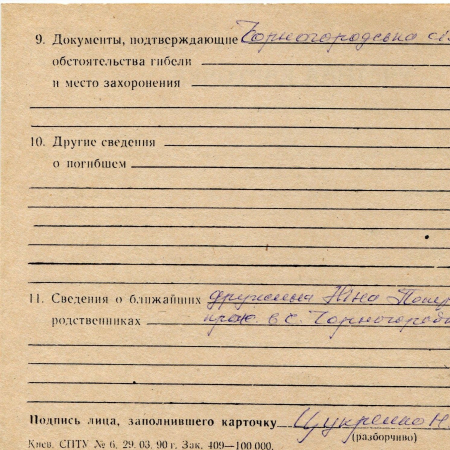 9. Документы, подтверждающие Чорногородська
обстоятельства гибели
и место захоронения
10. Другие сведения
о погибшем
11. Сведения о ближайших дружина Ніна
родственниках прож. в с.
Подпись лица, заполнившего карточку Цукренко Н
(разборчиво)
Киев. СПТУ № 6. 29. 03. 90 г. Зак. 409—100 000.